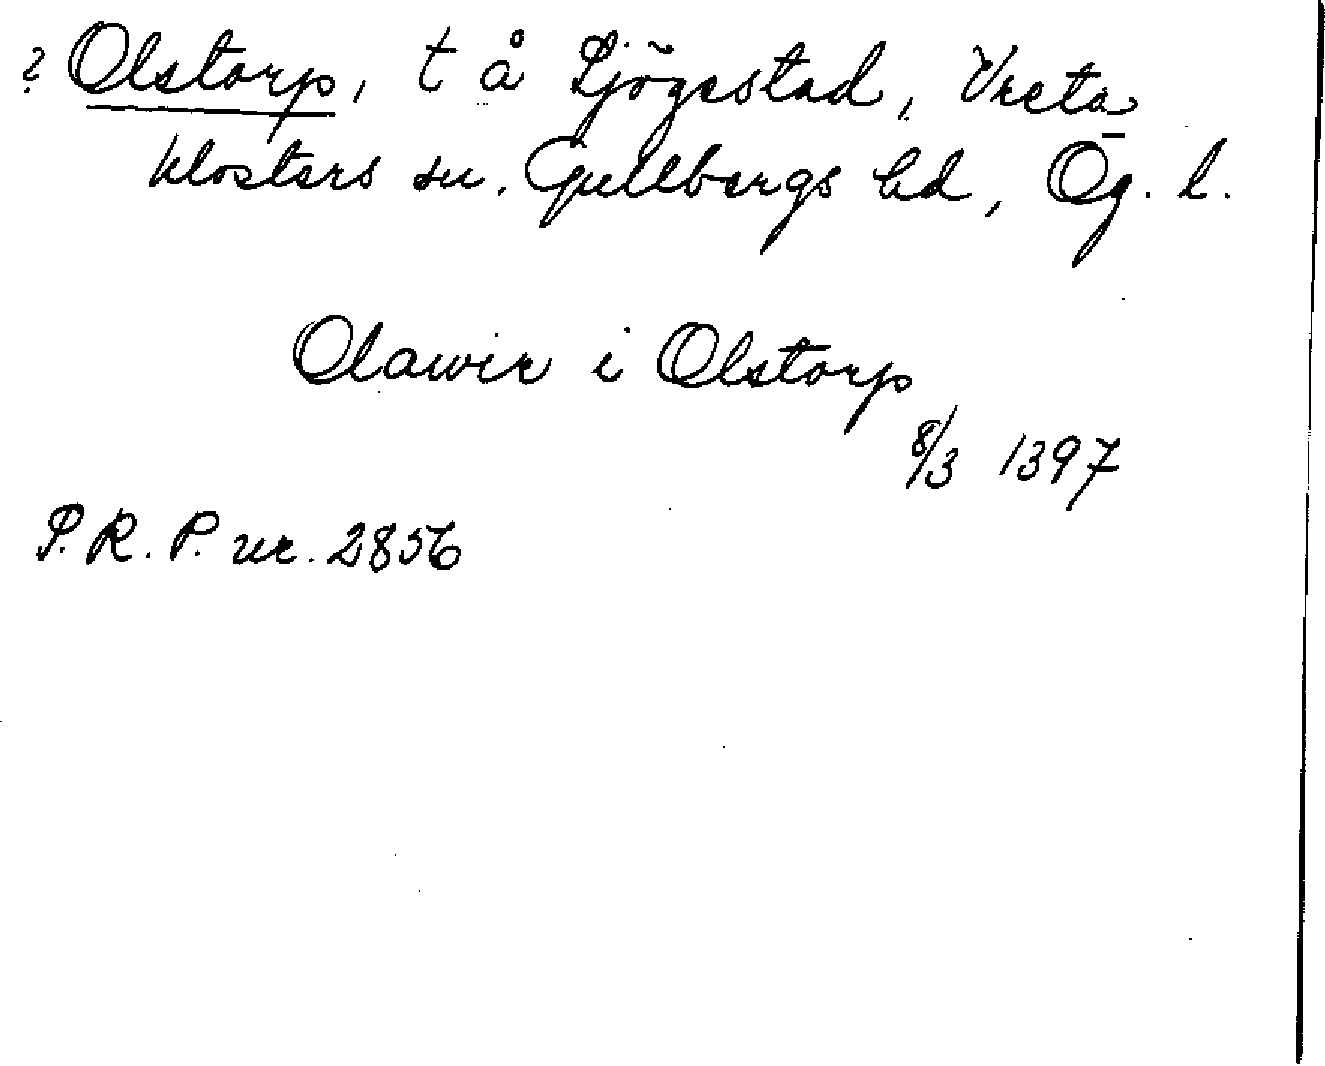 ? Olstorp, t å Ljögestad, Vreta
klosters sn. Gullbergs hd, Ög. l.
Olawir i Olstorp
8/3 1397
P. R. P. nr. 2856